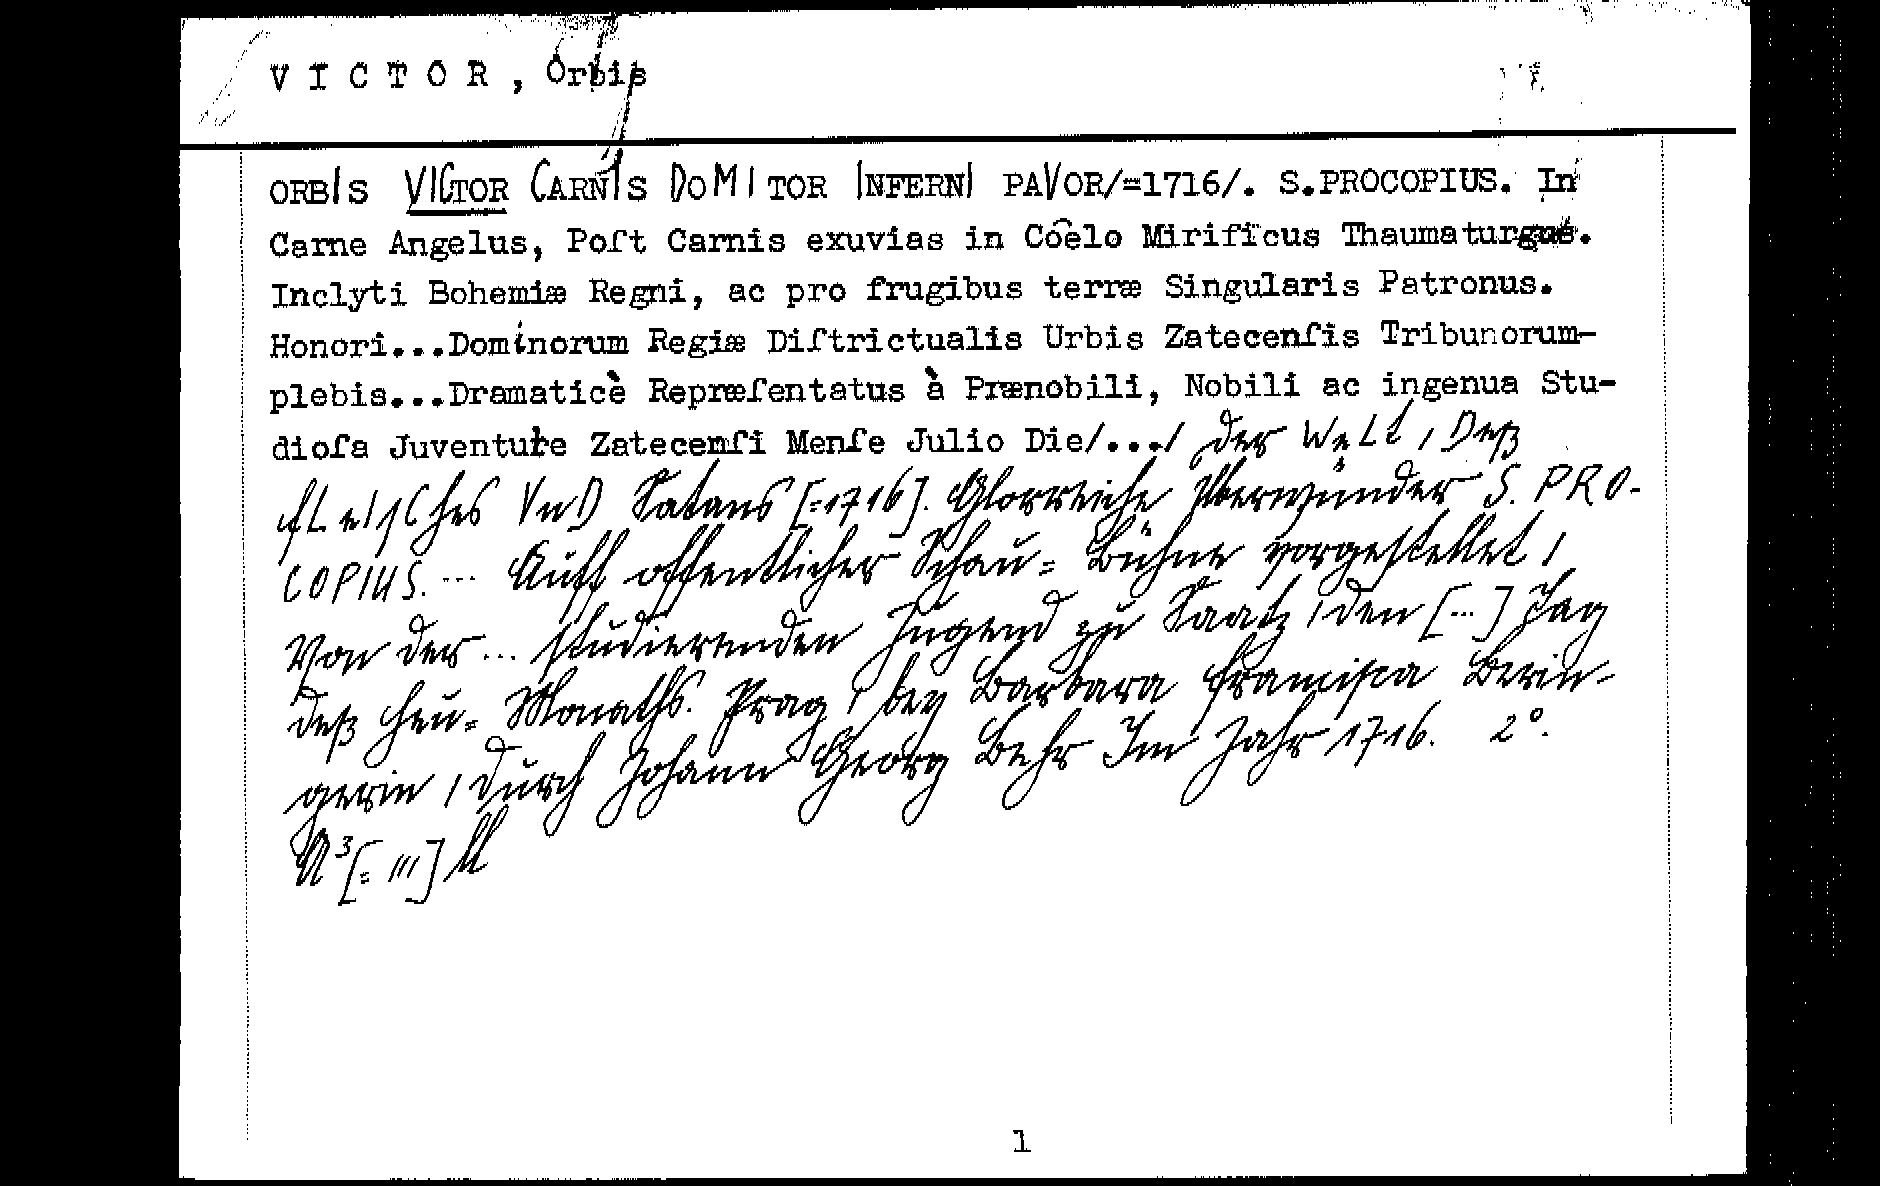 V I C T O R , Orbis
ORBIS VICTOR CARNIS DOMITOR INFERNI PAVOR/=1716/. S.PROCOPIUS. In
Carne Angelus, Poſt Carnis exuvias in Coêlo Mirificus Thaumaturgus.
Inclyti Bohemiæ Regni, ac pro frugibus terræ Singularis Patronus.
Honori...Dominorum Regiæ Diſtrictualis Urbis Zatecenſis Tribunorum-
plebis...Dramaticè Repræſentatus à Prænobili, Nobili ac ingenua Stu-
dioſa Juventute Zatecenſi Menſe Julio Die/.../ Der WeLt, Deß
fLeIſChes VnD Satans [=1716]. Glorreiche Überwünder S. PRO-
COPIUS. ... Auff offentlicher Schau= Bühne vorgestellet /
Von der ... studierenden Jugend zu Saatz / den [...] Tag
deß Heu= Monaths. Prag / bey Barbara Francisca Berin-
gerin / durch Johann Georg Behr Im Jahr 1716. 2°.
[= III] Bll
1